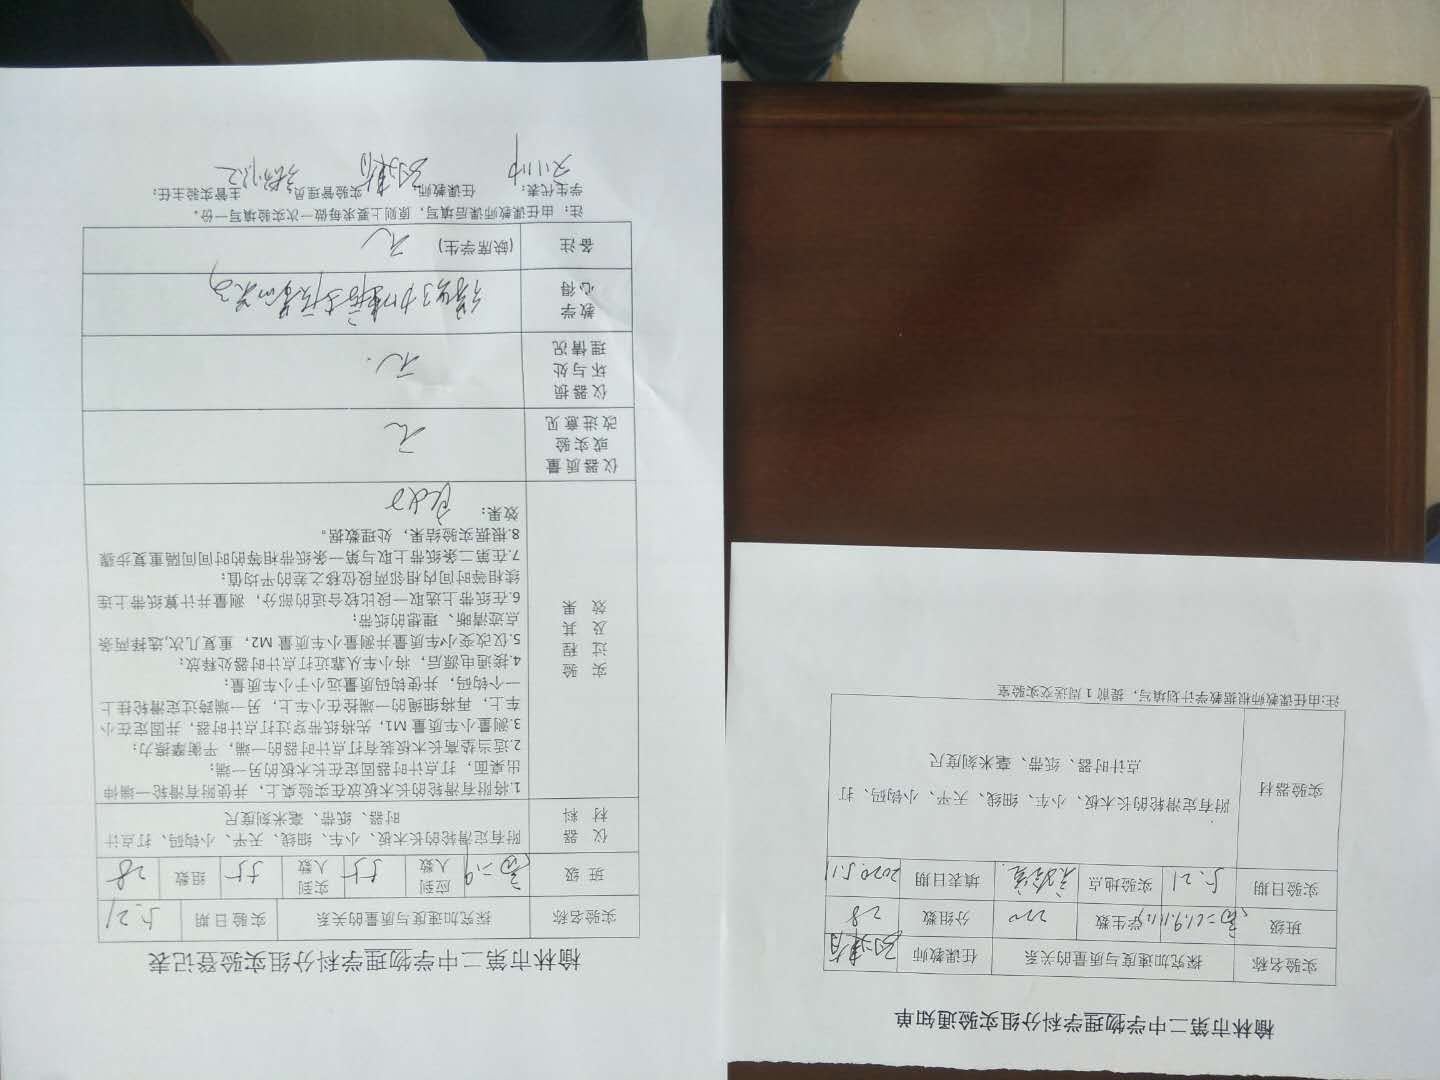 榆林市第二中学物理学科分组实验登记表
实验名称 探究加速度与质量的关系 实验日期 5.21
班级 高二19 应到人数 55 实到人数 55 组数 28
仪器材料 附有定滑轮的长木板、小车、细线、天平、小钩码、打点计
时器、纸带、毫米刻度尺
实验过程及其效果
1.将附有滑轮的长木板放在实验桌上，并使附有滑轮一端伸
出桌面，打点计时器固定在长木板的另一端；
2.适当垫高长木板装有打点计时器的一端，平衡摩擦力；
3.测量小车质量 M1，先将纸带穿过打点计时器，并固定在小
车上，再将细绳的一端拴在小车上，另一端跨过定滑轮拴上
一个钩码，并使钩码质量远小于小车质量；
4.接通电源后，将小车从靠近打点计时器处释放；
5.仅改变小车质量并测量小车质量 M2，重复几次,选择两条
点迹清晰、理想的纸带；
6.在纸带上选取一段比较合适的部分，测量并计算纸带上连
续相等时间内相邻两段位移之差的平均值；
7.在第二条纸带上取与第一条纸带相等的时间间隔重复步骤
8.根据实验结果，处理数据。
效果：
仪器质量或实验改进意见 无
仪器损坏与处理情况 无.
教学心得
备注 (缺席学生) 无
注：由任课教师课后填写，原则上要求每做一次实验填写一份。
学生代表： 任课教师： 实验管理员： 主管实验主任：
榆林市第二中学物理学科分组实验通知单
实验名称 探究加速度与质量的关系 任课教师
班级 学生数 220 分组数 28
实验日期 5.21 实验地点 实验室. 填表日期 2020.5.11
实验器材 附有定滑轮的长木板、小车、细线、天平、小钩码、打
点计时器、纸带、毫米刻度尺
注:由任课教师根据教学计划填写，提前 1 周送交实验室